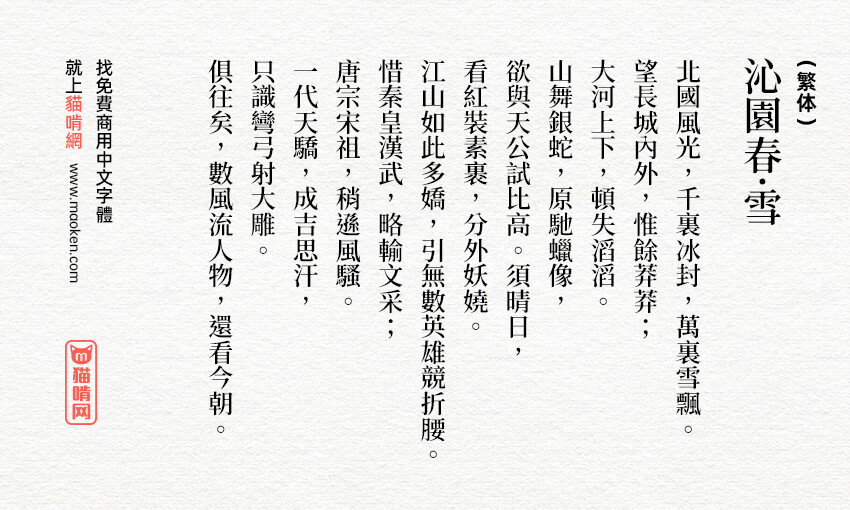 （繁体）
沁園春·雪
北國風光，千裏冰封，萬裏雪飄。
望長城內外，惟餘莽莽；
大河上下，頓失滔滔。
山舞銀蛇，原馳蠟像，
欲與天公試比高。須晴日，
看紅裝素裹，分外妖嬈。
江山如此多嬌，引無數英雄競折腰。
惜秦皇漢武，略輸文采；
唐宗宋祖，稍遜風騷。
一代天驕，成吉思汗，
只識彎弓射大雕。
俱往矣，數風流人物，還看今朝。
找免費商用中文字體
就上貓啃網 www.maoken.com
猫啃网